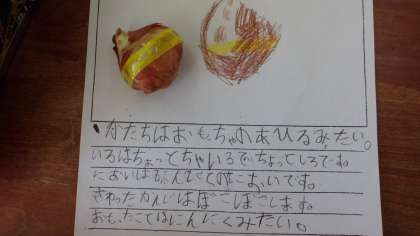 ・かたちはおもちゃのあひるみたい。
いろはちょっとちゃいろでちょっとしろです。
においは
さわったかんじはぼこぼこします。
おもったことはにんにくみたい。